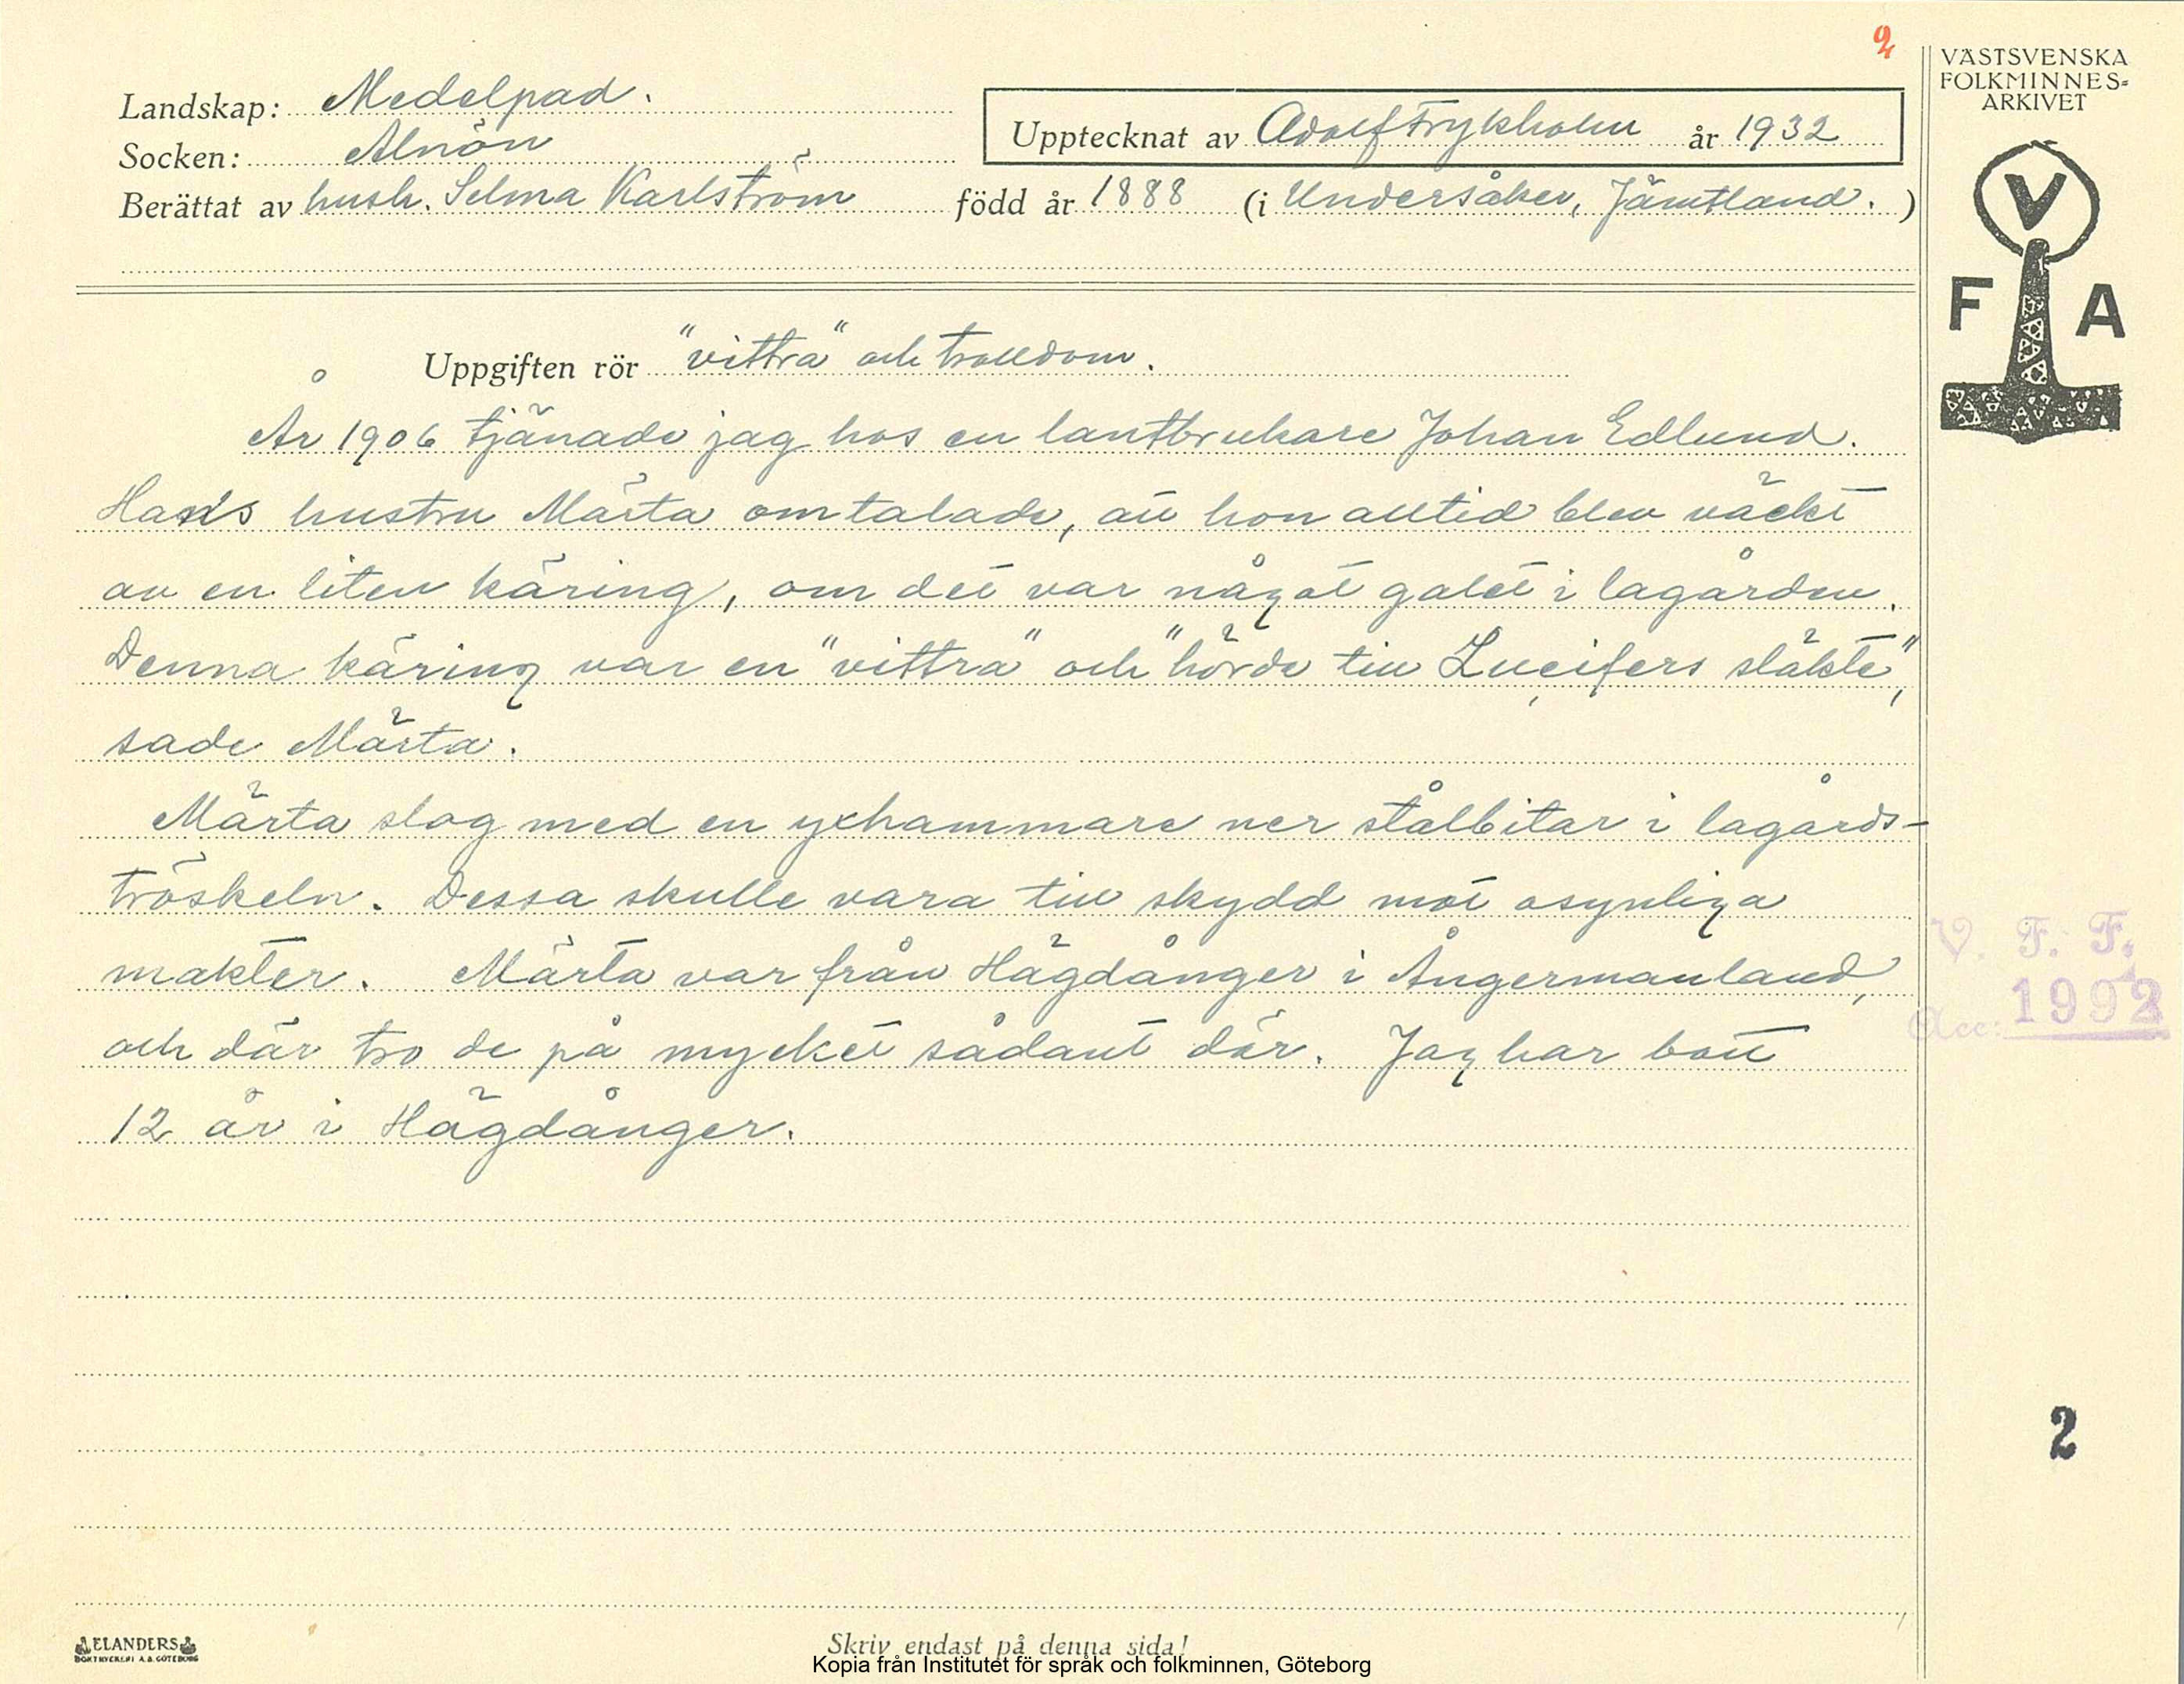 2
VÄSTSVENSKA
FOLKMINNES=
ARKIVET
V
F A
Landskap: Medelpad.
Socken: Alnön
Upptecknat av Adolf Frykholm år 1932
Berättat av hush. Selma Karlström född år 1888 (i Undersåker, Jämtland.)
Uppgiften rör "vittra" och trolldom.
År 1906 tjänade jag hos en lantbrukare Johan Edlund.
Hans hustru Märta omtalade, att hon alltid blev väckt
av en liten käring, om det var något galet i lagården.
Denna käring var en "vittra" och "hörde till Lucifers släkte",
sade Märta.
Märta slog med en yxhammare ner stålbitar i lagårds-
tröskeln. Dessa skulle vara till skydd mot osynliga
makter. Märta var från Hägdånger i Ångermanland,
och där tro de på mycket sådant där. Jag har bott
12 år i Hägdånger.
V. F. F.
Acc: 1992
2
ELANDERS
BOKTRYCKERI A.B. GÖTEBORG
Skriv endast på denna sida!
Kopia från Institutet för språk och folkminnen, Göteborg